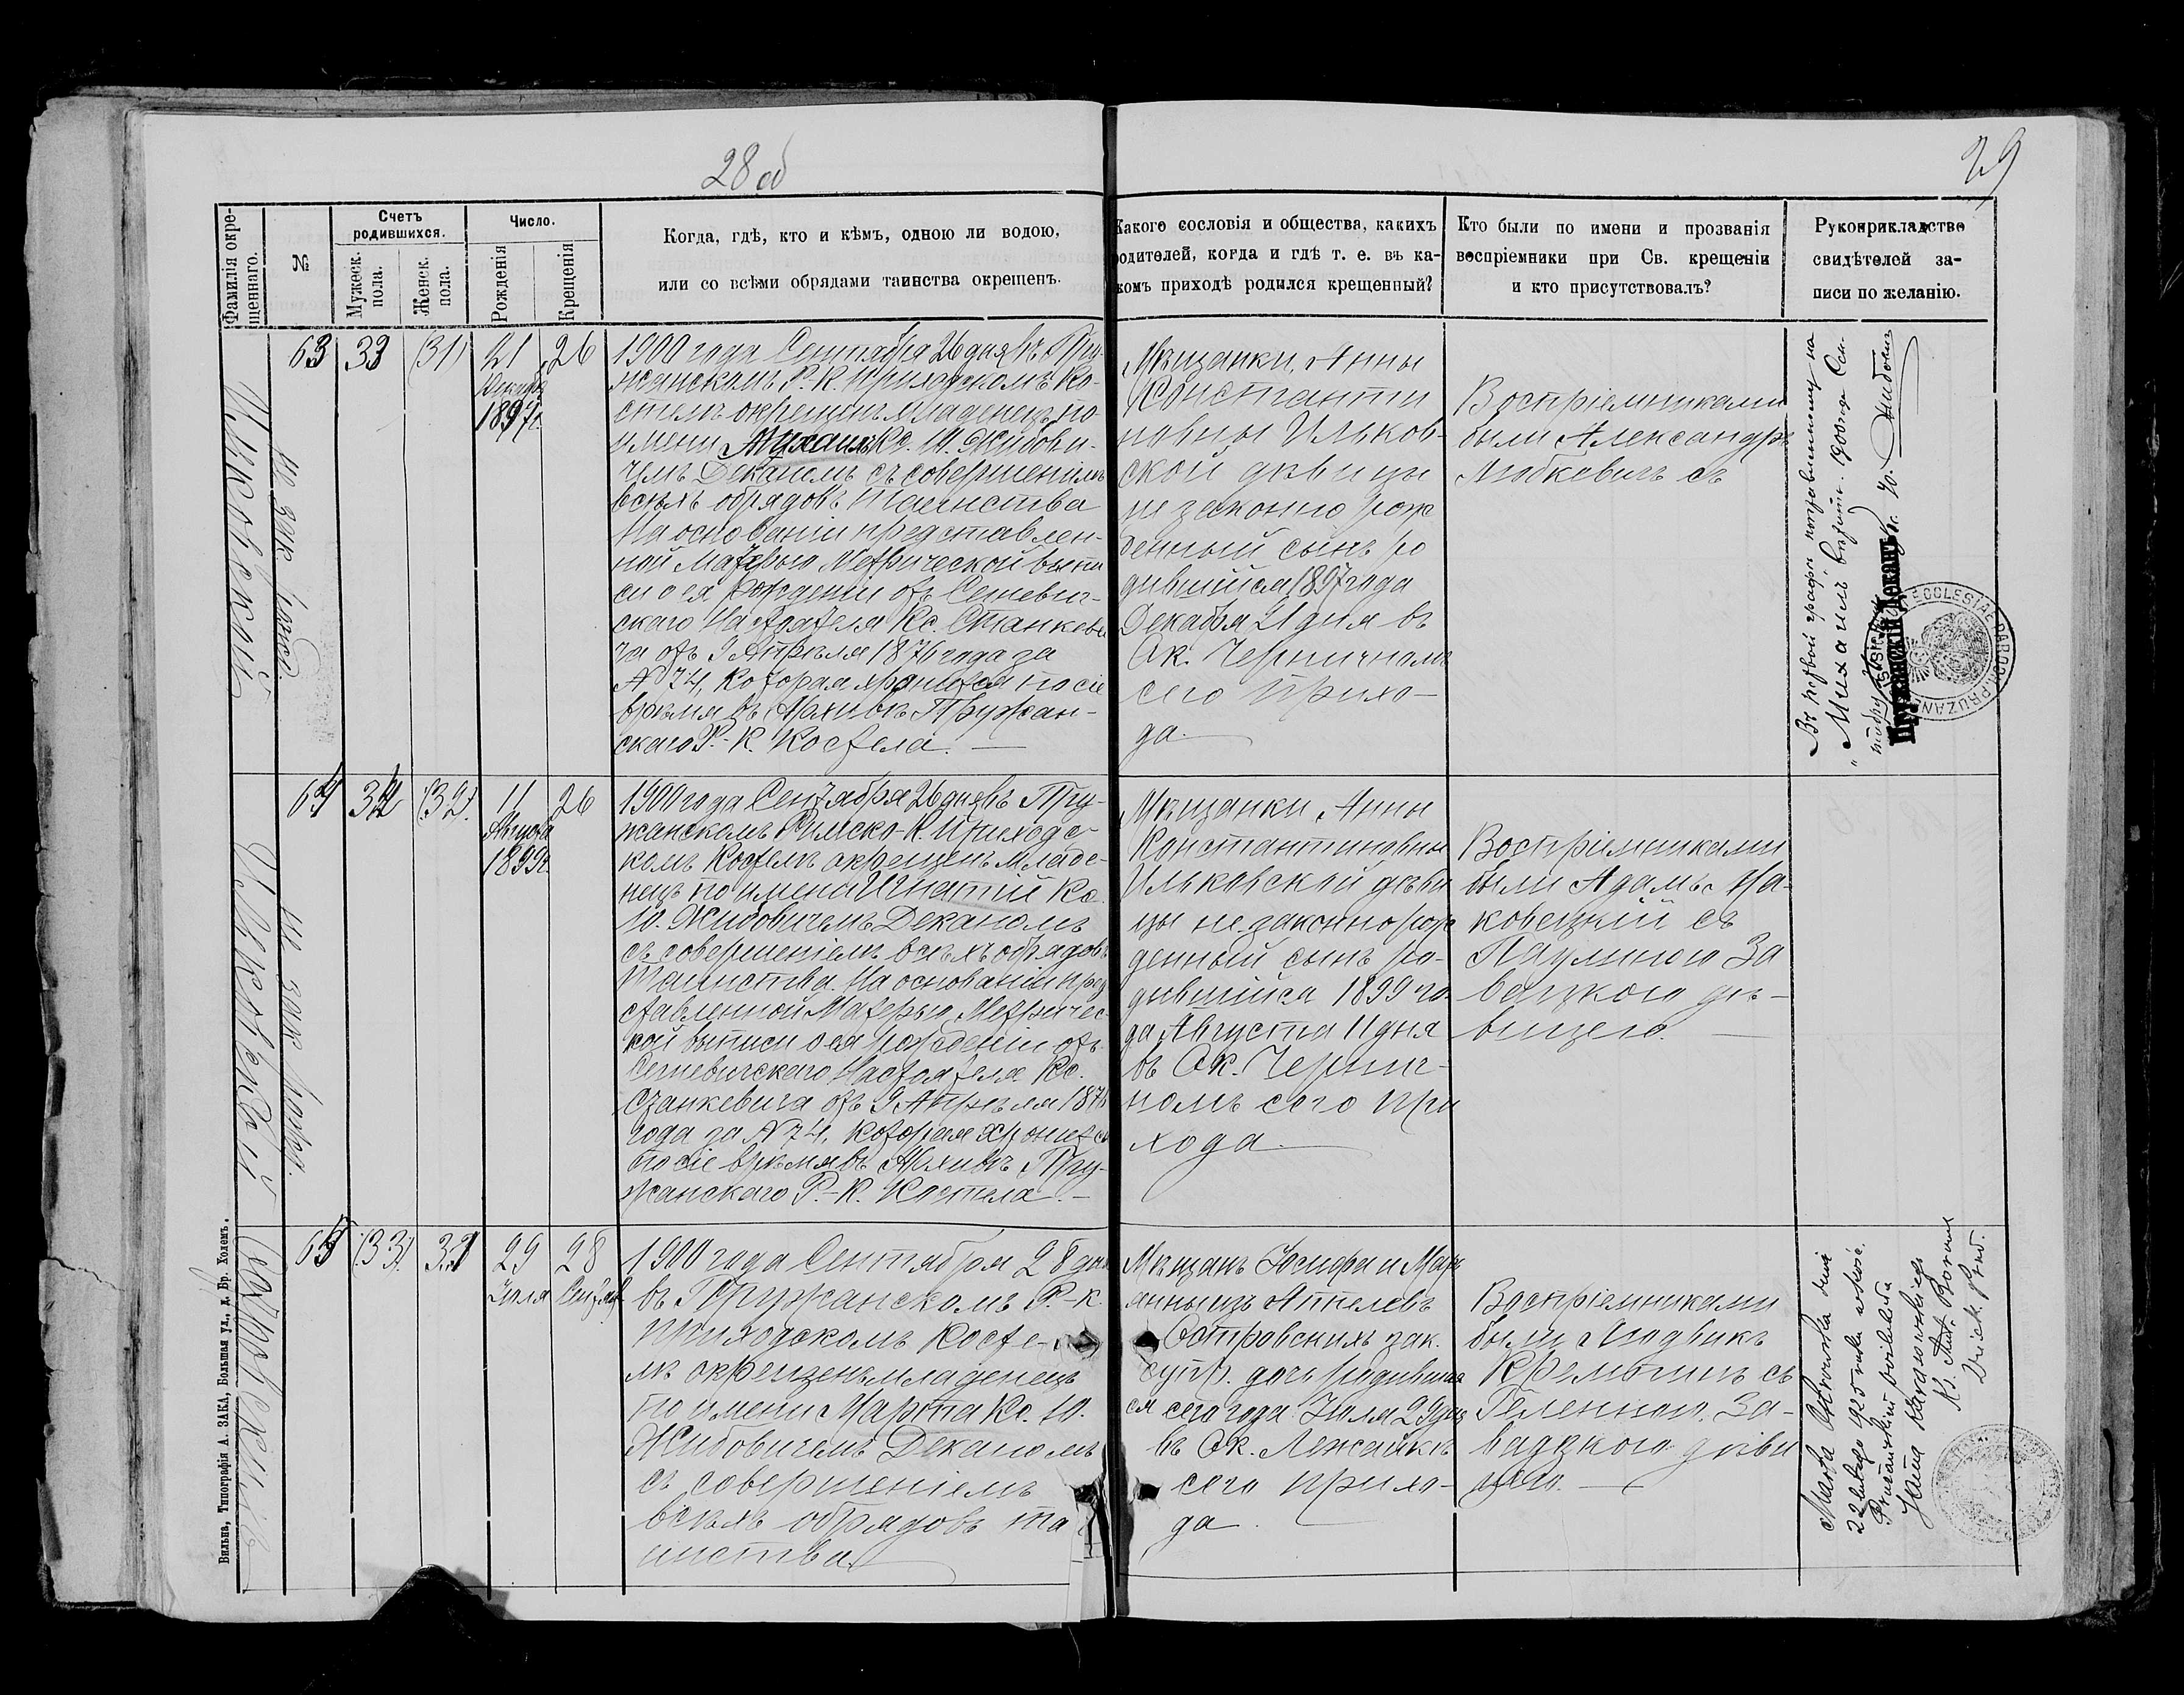 28 об
29
Фамилія окре-
щеннаго.
№
Счетъ
родившихся.
Мужеск.
пола.
Женск.
пола.
Число.
Рожденія
Крещенія
Когда, гдѣ, кто и кѣмъ, одною ли водою,
или со всѣми обрядами таинства окрещенъ.
Какого сословія и общества, какихъ
родителей, когда и гдѣ т. е. въ ка-
комъ приходѣ родился крещенный?
Кто были по имени и прозванія
воспріемники при Св. крещеніи
и кто присутствовалъ?
Рукоприкладство
свидѣтелей за-
писи по желанію.
Ильковскій
63
33
(31)
21
Декабря
1897г.
26
1900 года Сентября 26 дня въ Пру-
жанскомъ Р.-К. приходскомъ Ко-
стелѣ окрещенъ младенецъ по
имени Михаилъ Кс. Ю. Жидови-
чемъ Деканомъ съ совершеніемъ
всѣхъ обрядовъ таинства
На основаніи представлен-
ной Матерью Метрической выпи
си о ея рожденіи отъ Сешевич-
скаго Настоятеля Кс. Станкеви
ча отъ 9 Апрѣля 1876 года за
№ 74, которая хранится по сіе
время въ Архивѣ Пружан-
скаго Р.-К. Костела.
Мѣщанки, Анны
Константи
новны Ильков-
ской дѣвицы
не законно рож
денный сынъ ро
дившійся 1897 года
Декабря 21 дня въ
Ок. Черничномъ
сего прихо-
да.
Воспріемниками
были Александръ
Любкевичъ съ
Въ первой графѣ на
"Михаилъ" вѣрить. 1900 года Сен-
Ю. Жидовичъ
Пружанскій Деканъ
ECCLESIAE PAROCH. PRUZANENSIS
Ильковскій
64
34
(32)
11
Августа
1899г.
26
1900 года Сентября 26 дня въ Пру-
жанскомъ Римско-К. приходс-
комъ Костелѣ окрещенъ младе-
нецъ по имени Игнатій Кс.
Ю. Жидовичемъ Деканомъ
съ совершеніемъ всѣхъ обрядовъ
Таинства. На основаніи пред
ставленной Матерью Метричес-
кой выписи о ея рожденіи отъ
Сешевичскаго Настоятеля Кс.
Станкевича отъ 9 Апрѣля 1876
года за № 74, которая хранится
по сіе время въ Архивѣ Пру-
жанскаго Р.-К. Костела.
Мѣщанки, Анны
Константиновны
Ильковской дѣви
цы не законно рож
денный сынъ ро-
дившійся 1899 го-
да Августа 11 дня
въ Ок. Чернич-
номъ сего при
хода.
Воспріемниками
были Адамъ Ма-
ковецкій съ
Паулиною За
вацкою дѣ-
вицею.
65
(33)
32
29
Іюля
28
Сентяб
1900 года Сентября 28 дня
въ Пружанскомъ Р.-К.
Приходскомъ Косте-
лѣ окрещенъ младенецъ
по имени Марта Кс. Ю.
Жидовичемъ Деканомъ
съ совершеніемъ
всѣхъ обрядовъ та
инства
Мѣщанъ Іосифа и Мар
янны изъ Аппелевъ
Островскихъ зак.
супр. дочь родивша
ся сего года Іюля 29 дня
въ Ок. Лежайкѣ
сего прихо-
да.
Воспріемниками
были Людвикъ
съ
Геленною За-
вадзкою дѣви
цею.
Marta Ostrowska dnia
22 lutego 925 roku w kość.
Prużańskim poślubiła
Jana Karasowskiego
Ks. Ant.
Вильна, Типографія А. ЗАКА, Большая ул., д. Бр. Холемъ.